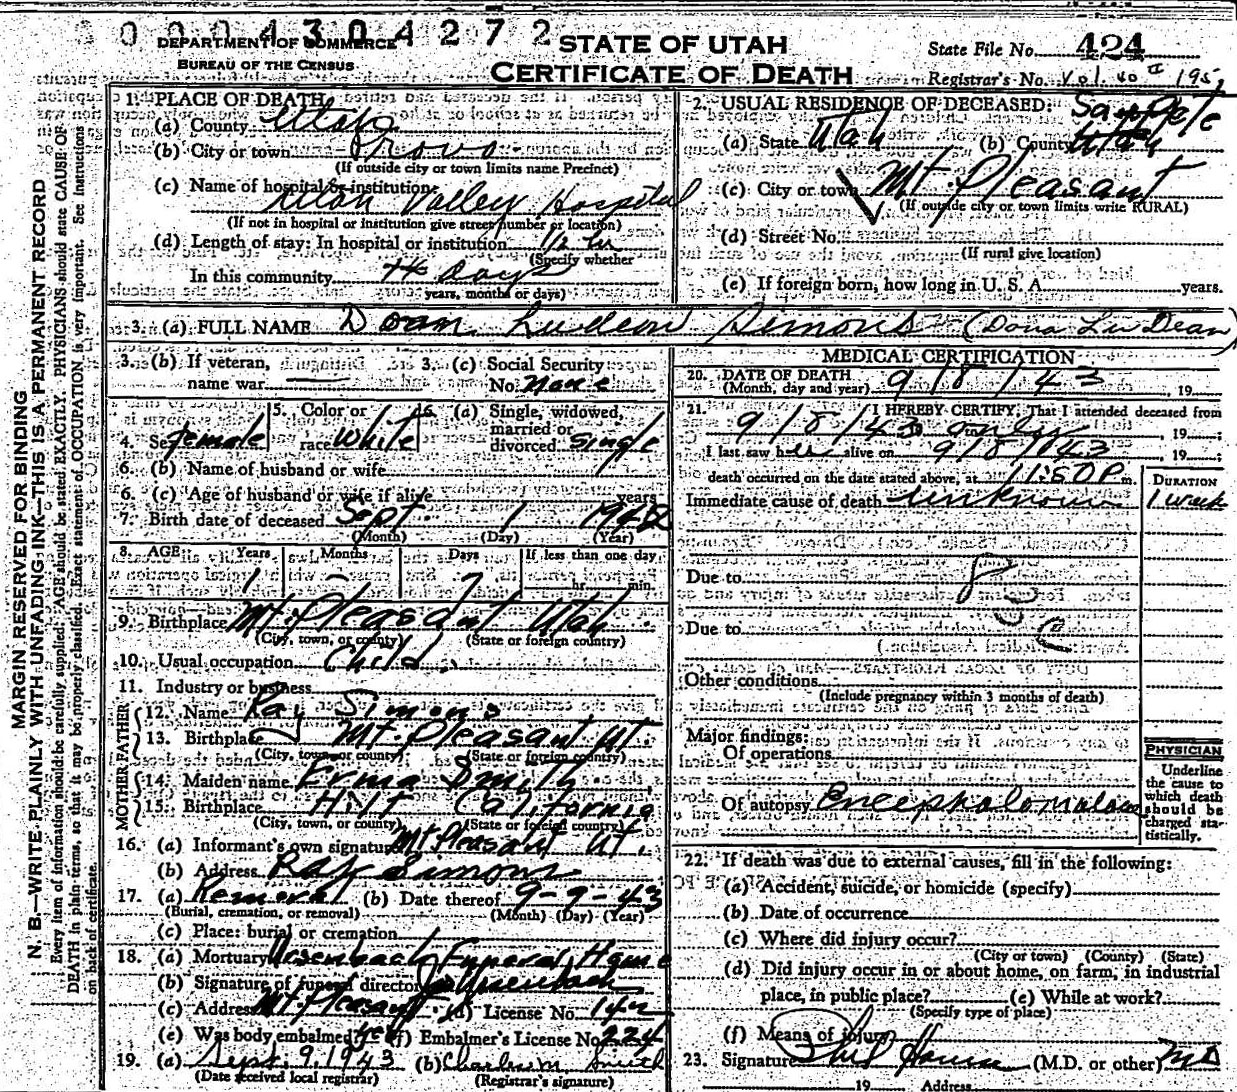 0004304272
DEPARTMENT OF COMMERCE
BUREAU OF THE CENSUS
STATE OF UTAH
CERTIFICATE OF DEATH
State File No. 424
Registrar's No. Vol. 40 II 195
MARGIN RESERVED FOR BINDING
N. B.—WRITE PLAINLY WITH UNFADING INK—THIS IS A PERMANENT RECORD
Every item of information should be carefully supplied. AGE should be stated EXACTLY. PHYSICIANS should state CAUSE OF
DEATH in plain terms, so that it may be properly classified. Exact statement of OCCUPATION is very important. See instructions
on back of certificate.
1. PLACE OF DEATH
(a) County Utah
(b) City or town Provo
(If outside city or town limits name Precinct)
(c) Name of hospital or institution:
Utah Valley Hospital
(If not in hospital or institution give street number or location)
(d) Length of stay: In hospital or institution 1/2 hr
(Specify whether
In this community Days
years, months or days)
2. USUAL RESIDENCE OF DECEASED:
Sanpete
(a) State Utah (b) County Utah
(c) City or town Mt. Pleasant
(If outside city or town limits write RURAL)
(d) Street No.
(If rural give location)
(e) If foreign born, how long in U. S. A. years.
3. (a) FULL NAME Doan Ludean Simons (Dona Lu Dean)
3. (b) If veteran,
name war
3. (c) Social Security
No. None
4. Sex female
5. Color or
race White
6. (a) Single, widowed,
married or
divorced Single
6. (b) Name of husband or wife
6. (c) Age of husband or wife if alive years
7. Birth date of deceased Sept. 1 1942
(Month) (Day) (Year)
8. AGE: Years Months Days If less than one day
1 - 7 hr. min.
9. Birthplace Mt. Pleasant Utah
(City, town, or county) (State or foreign country)
10. Usual occupation Child.
11. Industry or business
FATHER
12. Name Ray Simons
13. Birthplace Mt. Pleasant Ut.
(City, town, or county) (State or foreign country)
MOTHER
14. Maiden name Erma Smith
15. Birthplace California
(City, town, or county) (State or foreign country)
16. (a) Informant's own signature Mt Pleasant Ut.
(b) Address Ray Simons
17. (a) Removal (b) Date thereof 9-9-43
(Burial, cremation, or removal) (Month) (Day) (Year)
(c) Place: burial or cremation
18. (a) Mortuary Ursenbach Funeral Home
(b) Signature of funeral director Ursenbach
(c) Address Mt. Pleasant (d) License No. 142
(e) Was body embalmed yes (f) Embalmer's License No. 224
19. (a) Sept. 9. 1943 (b) Charles M. Smith
(Date received local registrar) (Registrar's signature)
MEDICAL CERTIFICATION
20. DATE OF DEATH
(Month, day and year) 9/8/43, 19
21. I HEREBY CERTIFY, That I attended deceased from
9/8/43 only, 19
I last saw her alive on 9/8/43, 19
death occurred on the date stated above, at 11:50 P m.
DURATION
Immediate cause of death unknown 1 week
Due to
Due to
Other conditions
(Include pregnancy within 3 months of death)
Major findings:
Of operations
Of autopsy Encephalomalacia
PHYSICIAN
Underline
the cause to
which death
should be
charged sta-
tistically.
22. If death was due to external causes, fill in the following:
(a) Accident, suicide, or homicide (specify)
(b) Date of occurrence
(c) Where did injury occur?
(City or town) (County) (State)
(d) Did injury occur in or about home, on farm, in industrial
place, in public place? (e) While at work?
(Specify type of place)
(f) Means of injury
23. Signature (M.D. or other) MD
19 Address